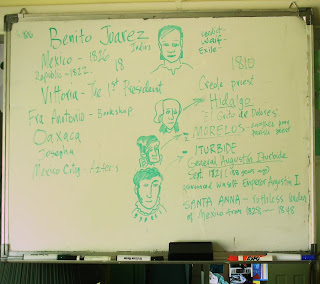 '06
Benito Juarez
Indios
Mexico - 1826
Republic - 1822
18
Vittoria - The 1st President
Fra Antonio - Bookshop
Oaxaca
Josepha
Mexico City - Aztecs
Exile -
1810
Creole priest
Hidalgo
"El Grito de Dolores"
MORELOS -
ITURBIDE
General Augustin Iturbide
Sept. 1821 (
himself Emperor Augustin I
SANTA ANNA - ruthless leader
of Mexico from 1829 - 1848
EXPO